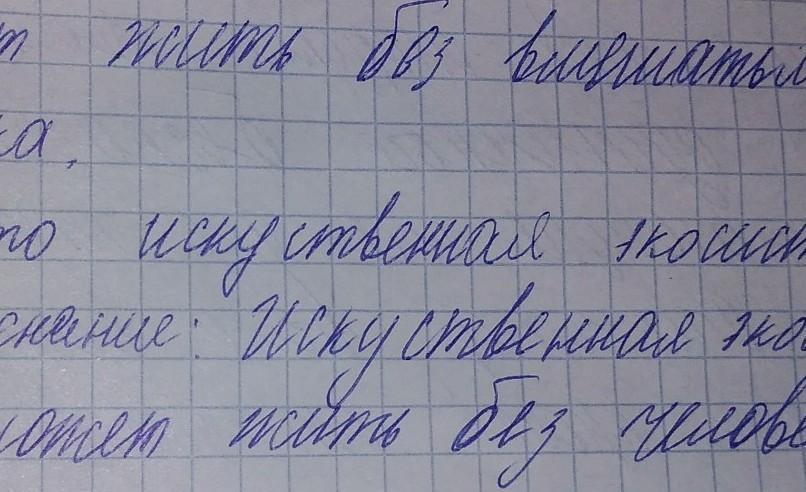 т жить без вмешатьл
ка.
то искуственная экосист
снение: Искуственная эко
может жить без челове